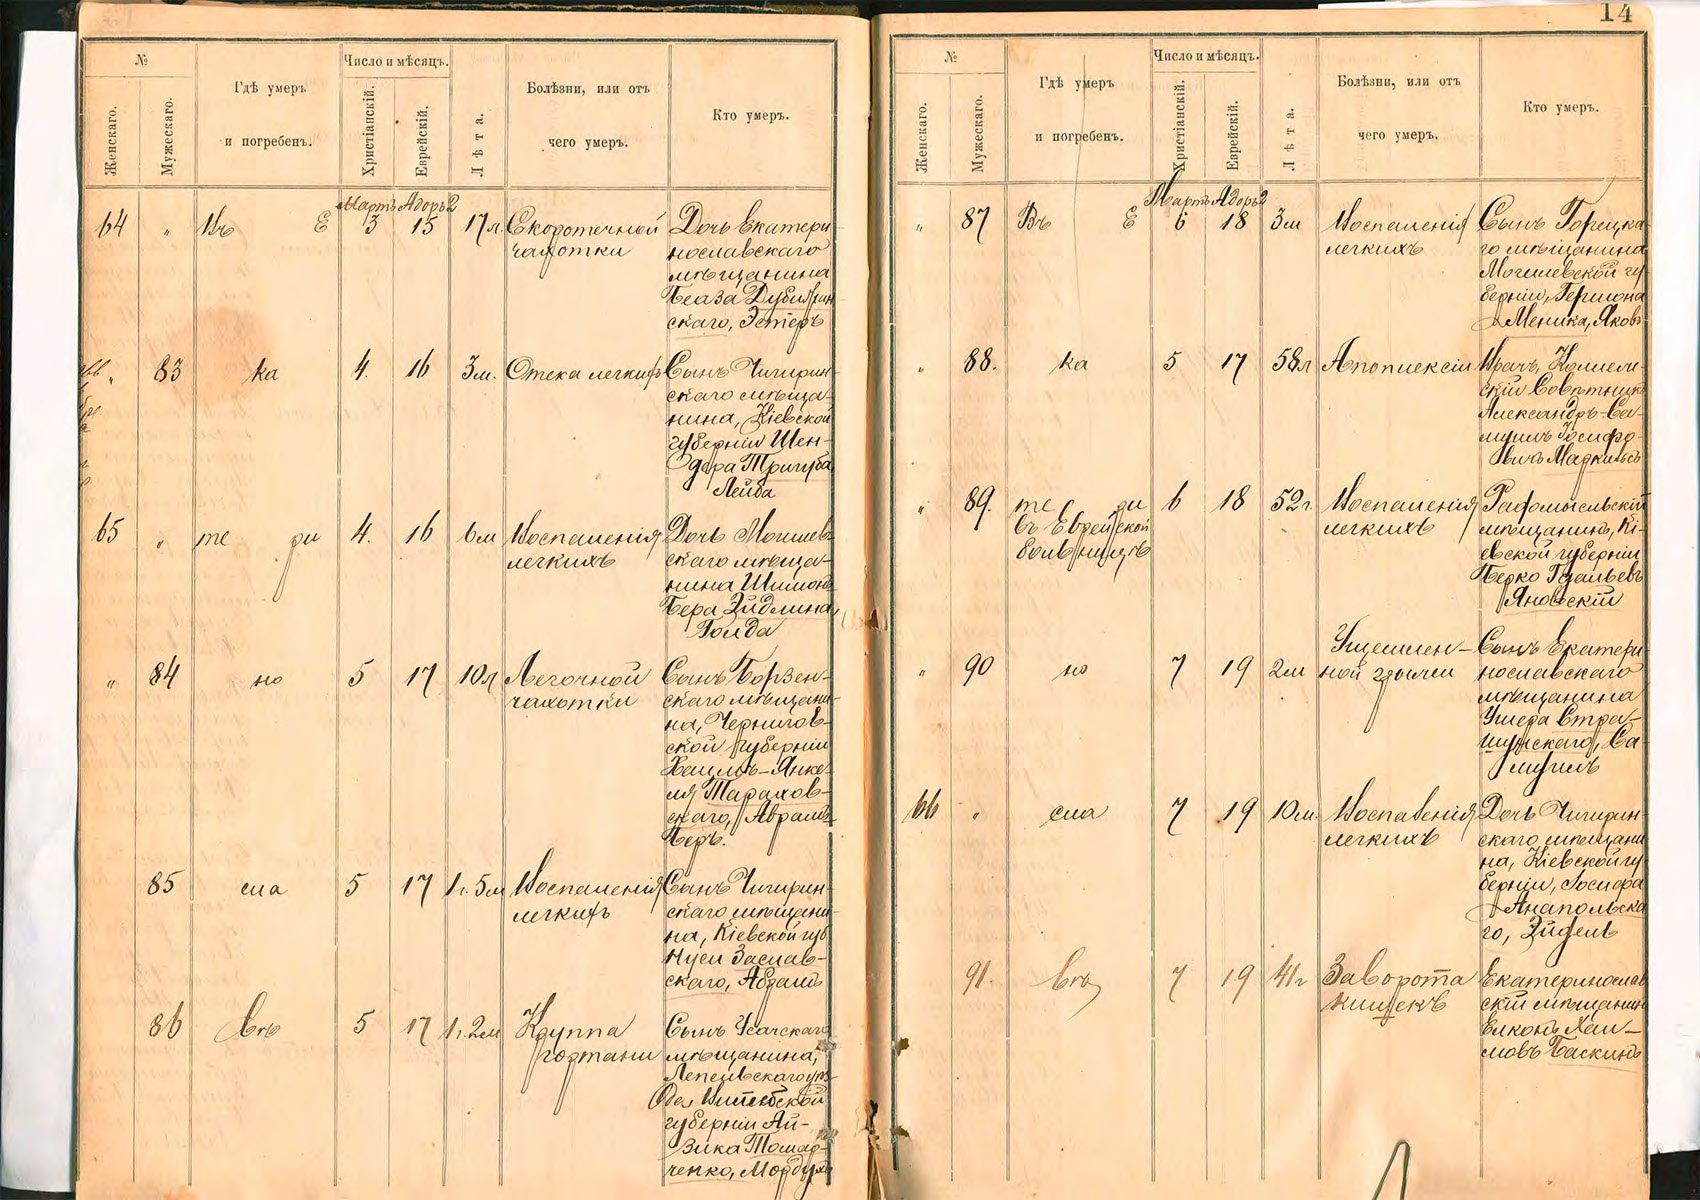 №
Женскаго.
Мужескаго.
Гдѣ умеръ
и погребенъ.
Число и мѣсяцъ.
Христіанскій.
Еврейскій.
Лѣта.
Болѣзни, или отъ
чего умеръ.
Кто умеръ.
Мартъ Адоръ 2
64 „ Въ Е 3 15 17 л. Скоротечной
чахотки
Дочь Екатери
нославскаго
мѣщанина
скаго, Эстеръ
„ 83 ка 4. 16 3 м. Отека легкихъ
Сынъ Чигирин-
скаго мѣща-
нина, Кіевской
губерніи Шен-
дера Тригуба
Лейба
65 „ те ри 4. 16 6 м Воспаленія
легкихъ
Дочь Могилев
скаго мѣща-
нина Шимона
Бера Эйдлина,
Голда
„ 84 но 5 17 10 л Легочной
чахотки
Сынъ Борзен-
скаго мѣщани
на, Чернигов-
ской губерніи
Янке-
ля Тарахов-
скаго, Абрамъ
Беръ.
85 сла 5 17 1 г. 5 м Воспаленія
легкихъ
Сынъ Чигирин-
скаго мѣщани
на, Кіевской губ
Нуси Заслав-
скаго, Абрамъ
86 вѣ 5 17 1 г. 2 м Круппа
гортани
Сынъ Усачскаго
мѣщанина,
Лепельскаго уѣз
да, Витебской
губерніи Ай-
зика Тошар-
ченко, Мордухъ
14
№
Женскаго.
Мужескаго.
Гдѣ умеръ
и погребенъ.
Число и мѣсяцъ.
Христіанскій.
Еврейскій.
Лѣта.
Болѣзни, или отъ
чего умеръ.
Кто умеръ.
Мартъ Адоръ 2
„ 87 Въ Е 6 18 3 м Воспаленія
легкихъ
Сынъ Горецка-
го мѣщанина
Могилевской гу-
берніи, Гершона
Меника, Яковъ
„ 88. ка 5 17 58 л Апоплексіи
Врачъ, Коллеж-
скій Совѣтникъ
Александръ-Са-
муилъ Іосифо-
вичъ
„ 89. те ри 6 18 52 г. Воспаленія
въ Еврейской легкихъ
больницѣ
Радомысльскій
мѣщанинъ, Кі-
евской губерніи
Берко
Яновскій
„ 90 но 7 19 2 м Ущемлен-
ной грыжи
Сынъ Екатери
нославскаго
мѣщанина
Ушера Стра-
шунскаго, Са-
муилъ
66 „ сла 7 19 10 м. Воспаленія
легкихъ
Дочь Чигирин
скаго мѣщани
на, Кіевской гу
берніи, Іосифа
Анапольска
го, Эйдель
91. вѣ 7 19 41 г Заворота
кишекъ
Екатеринослав
скій мѣщанин
Елконъ Хаи-
мовъ Баскинъ